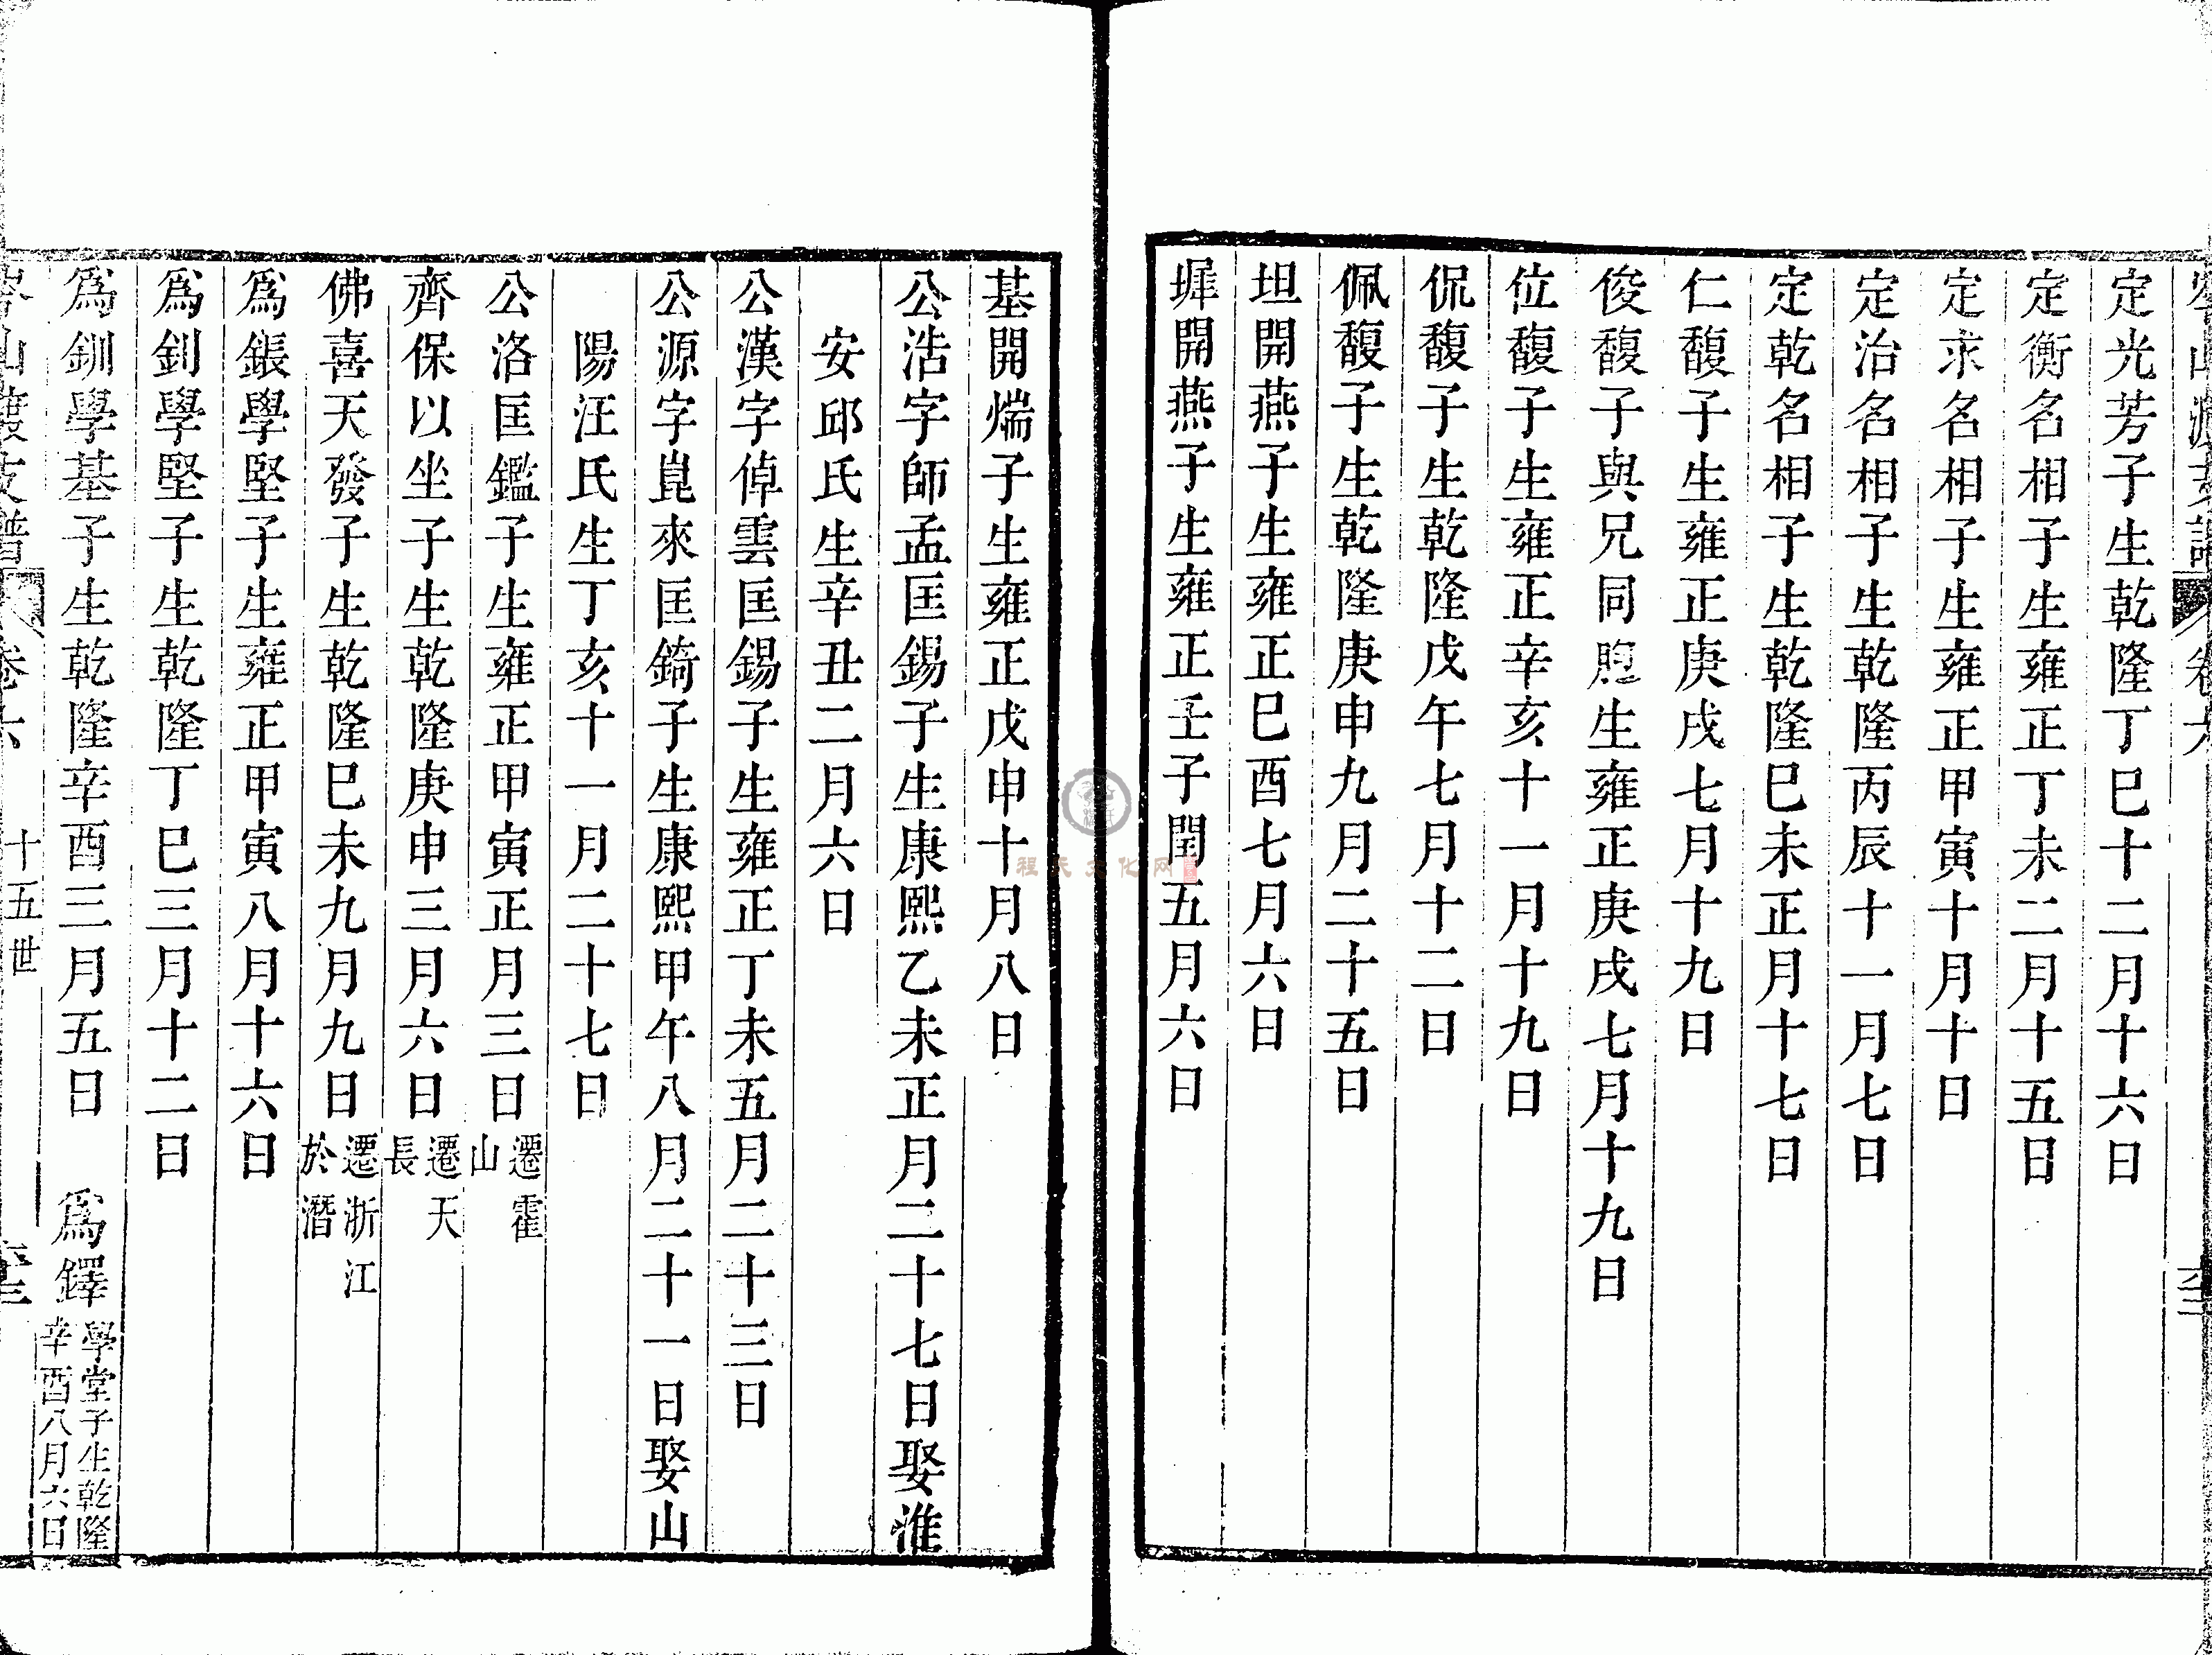 定光芳子生乾隆丁巳十二月十六日
定衡名相子生雍正丁未二月十五日
定求名相子生雍正甲寅十月十日
定治名相子生乾隆丙辰十一月七日
定乾名相子生乾隆巳未正月十七日
仁馥子生雍正庚戌七月十九日
俊馥子與兄同胞生雍正庚戌七月十九日
位馥子生雍正辛亥十一月十九日
侃馥子生乾隆戊午七月十二日
佩馥子生乾隆庚申九月二十五日
坦開燕子生雍正巳酉七月六日
墀開燕子生雍正壬子閏五月六日
程氏文化网
基開煓子生雍正戊申十月八日
公浩字師孟匡錫子生康熙乙未正月二十七日娶淮
安邱氏生辛丑二月六日
公漢字倬雲匡錫子生雍正丁未五月二十三日
公源字崑來匡錡子生康熙甲午八月二十一日娶山
陽汪氏生丁亥十一月二十七日
公洛匡鑑子生雍正甲寅正月三日遷霍山
齊保以坐子生乾隆庚申三月六日遷天長
佛喜天發子生乾隆巳未九月九日遷浙江於潛
爲鋹學堅子生雍正甲寅八月十六日
爲釗學堅子生乾隆丁巳三月十二日
爲釧學基子生乾隆辛酉三月五日 爲鐸學堂子生乾隆辛酉八月六日
岑山渡支譜 卷六 十五世